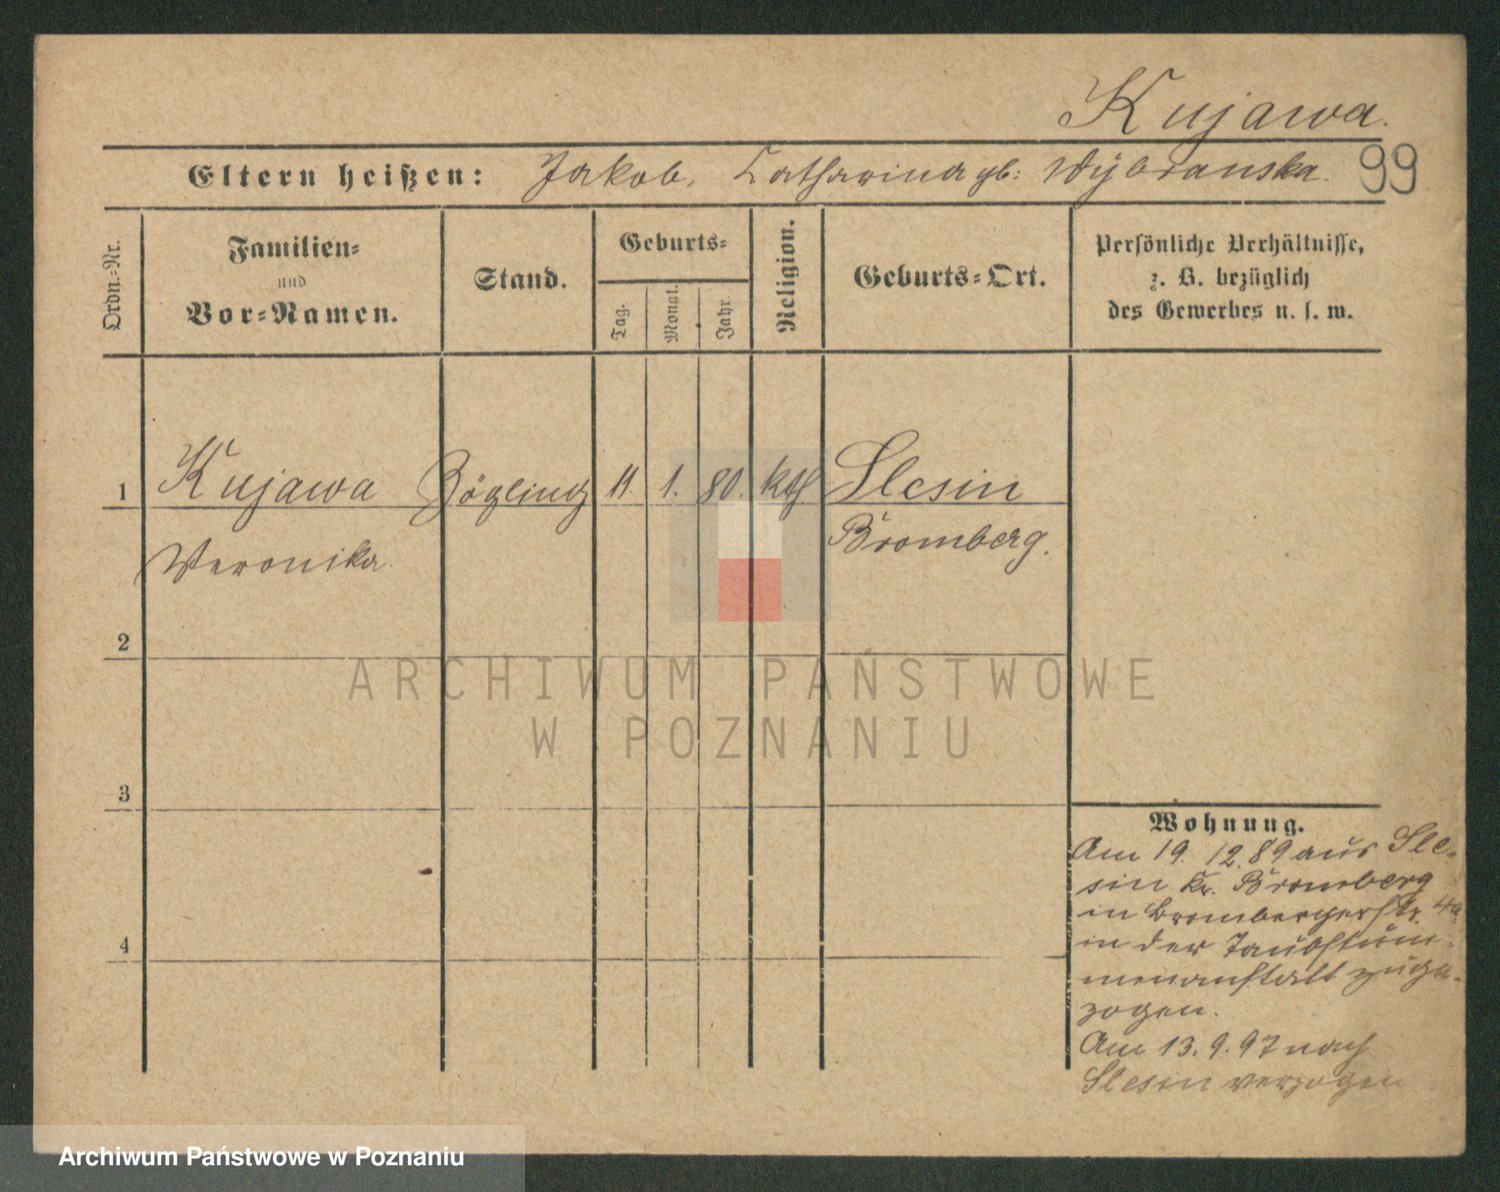 Kujawa.
Eltern heißen: Jakob, Catharina gb: Wybranska. 99
Ordn.-Nr.
Familien-
und
Vor-Namen.
Stand.
Geburts-
Tag.
Monat.
Jahr.
Religion.
Geburts-Ort.
Persönliche Verhältnisse,
z. B. bezüglich
des Gewerbes u. s. w.
1 Kujawa Zögling 11. 1. 80. kth Slesin
Veronika. Bromberg.
2
3
4
Wohnung.
Am 19. 12. 89 aus Sle-
sin Kr. Bromberg
in Brombergerstr. 4a
in der Taubstum-
menanstalt zuge-
zogen.
Am 13. 9. 97 nach
Slesin verzogen
ARCHIWUM PAŃSTWOWE
W POZNANIU
Archiwum Państwowe w Poznaniu